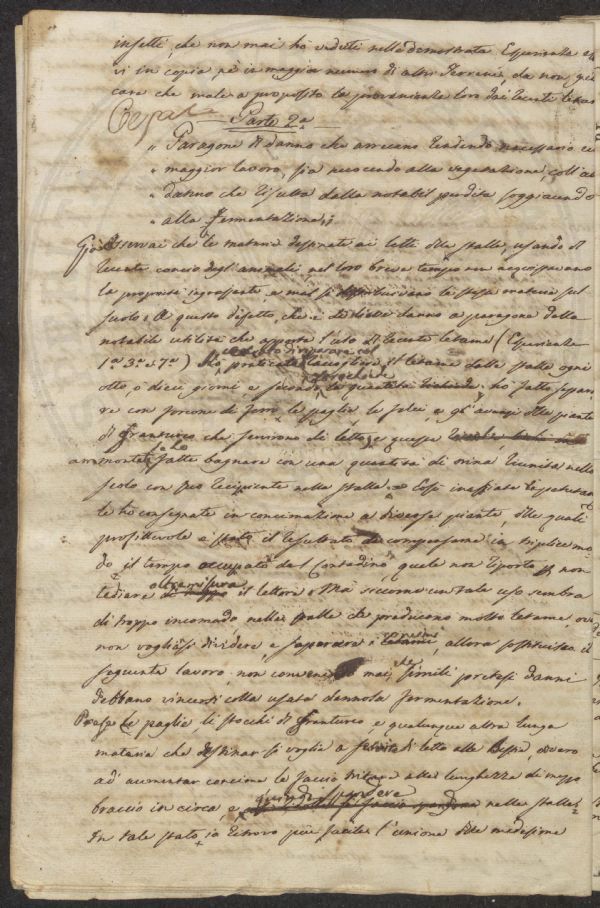 insetti, che non mai hò veduti nella demostrata Esperienza
vi in copia nè in maggior numero di altri Terreni, da non
care che male a proposito la provenienza loro dai recenti letami
Parte 2a
" Paragone di danno che arrecano rendendo necessario
" maggior lavoro, sia nuocendo alla vegetazione, coll'
" danno che risulta dalla notabil perdita soggiacendo
" alla fermentazione;
Osservai che le materie destinate ai letti delle stalle, usando di
recente concio degl'animali nel loro breve tempo non acquistavano
la proprietà, e mal si distribuivano le stesse materie sul
suolo: A questo difetto, che è di lieve danno a paragone della
notabile utilità che apporta l'uso di recente letame (Esperienze
1a 3a e 7a) il letame dalle stalle ogni
otto, ò dieci giorni, e secondo la quantità hò fatto separa-
re con forcone di ferro le paglie, le felci, e gl'avanzi delle piante
di franturco che servirono di letto, e queste
ammontate fatte bagnare con una quantità di orina riunita nello
scolo con suo recipiente nella stalla. Così inaffiate
le hò consegnate in concimazione a diverse piante, delle quali
profittevole è stato il resultato da compensarne in triplice mo-
do il tempo occupato dal Contadino, quale non riporto p. non
tediare oltremisura il lettore. Ma siccome un tale uso sembra
di troppo incomodo nelle stalle che producono molto letame, ove
non vogliasi dividere, e separare i concimi, allora sostituisca il
seguente lavoro, non convenendo mai, che simili pretesi danni
debbano vincersi colla usata dannosa fermentazione.
Prese le paglie, li stocchi di franturco, e qualunque altra lunga
materia che destinar si voglia a servire di letto alle Bestie, ovvero
ad aumentar concime le faccio tritare alla lunghezza di mezzo
braccio in circa, e quindi spandere nelle stalle:
In tale stato, io ritrovo più facile l'unione delle medesime